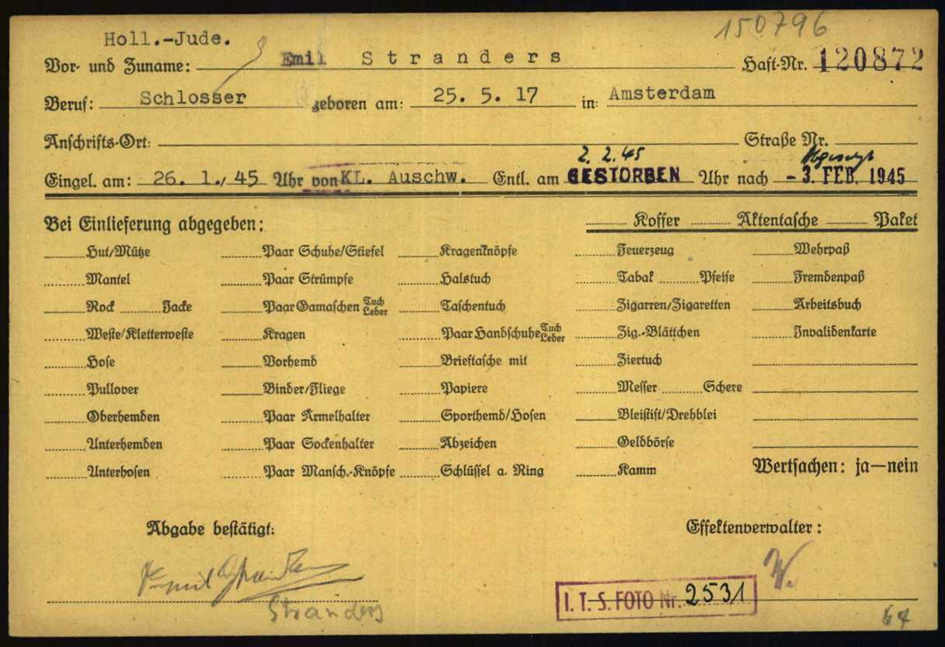 150796
Holl.-Jude.
Vor- und Zuname: Emil Stranders Haft-Nr. 120872
Beruf: Schlosser geboren am: 25. 5. 17 in: Amsterdam
Anschrifts-Ort: Straße Nr.
2. 2. 45
Eingel. am: 26. 1./45 Uhr von KL. Auschw. Entl. am GESTORBEN Uhr nach - 3. FEB. 1945
Bei Einlieferung abgegeben: Koffer Aktentasche Paket
Hut/Mütze Paar Schuhe/Stiefel Kragenknöpfe Feuerzeug Wehrpaß
Mantel Paar Strümpfe Halstuch Tabak Pfeife Fremdenpaß
Rock Jacke Paar Gamaschen Tuch Leder Taschentuch Zigarren/Zigaretten Arbeitsbuch
Weste/Kletterweste Kragen Paar Handschuhe Tuch Leder Zig.-Blättchen Invalidenkarte
Hose Vorhemd Brieftasche mit Ziertuch
Pullover Binder/Fliege Papiere Messer Schere
Oberhemden Paar Ärmelhalter Sporthemd/Hosen Bleistift/Drehblei
Unterhemden Paar Sockenhalter Abzeichen Geldbörse
Unterhosen Paar Mansch.-Knöpfe Schlüssel a. Ring Kamm Wertsachen: ja—nein
Abgabe bestätigt: Effektenverwalter:
Emil Stranders
Stranders
I. T. S. FOTO Nr. 2531
64